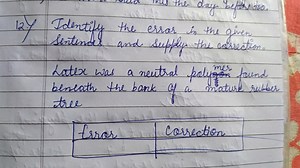 the day before
12) Identify the error in the given
sentence and supply the correction.
Latex was a neutral polymer found
beneath the bank of a mature rubber
tree
Error Correction